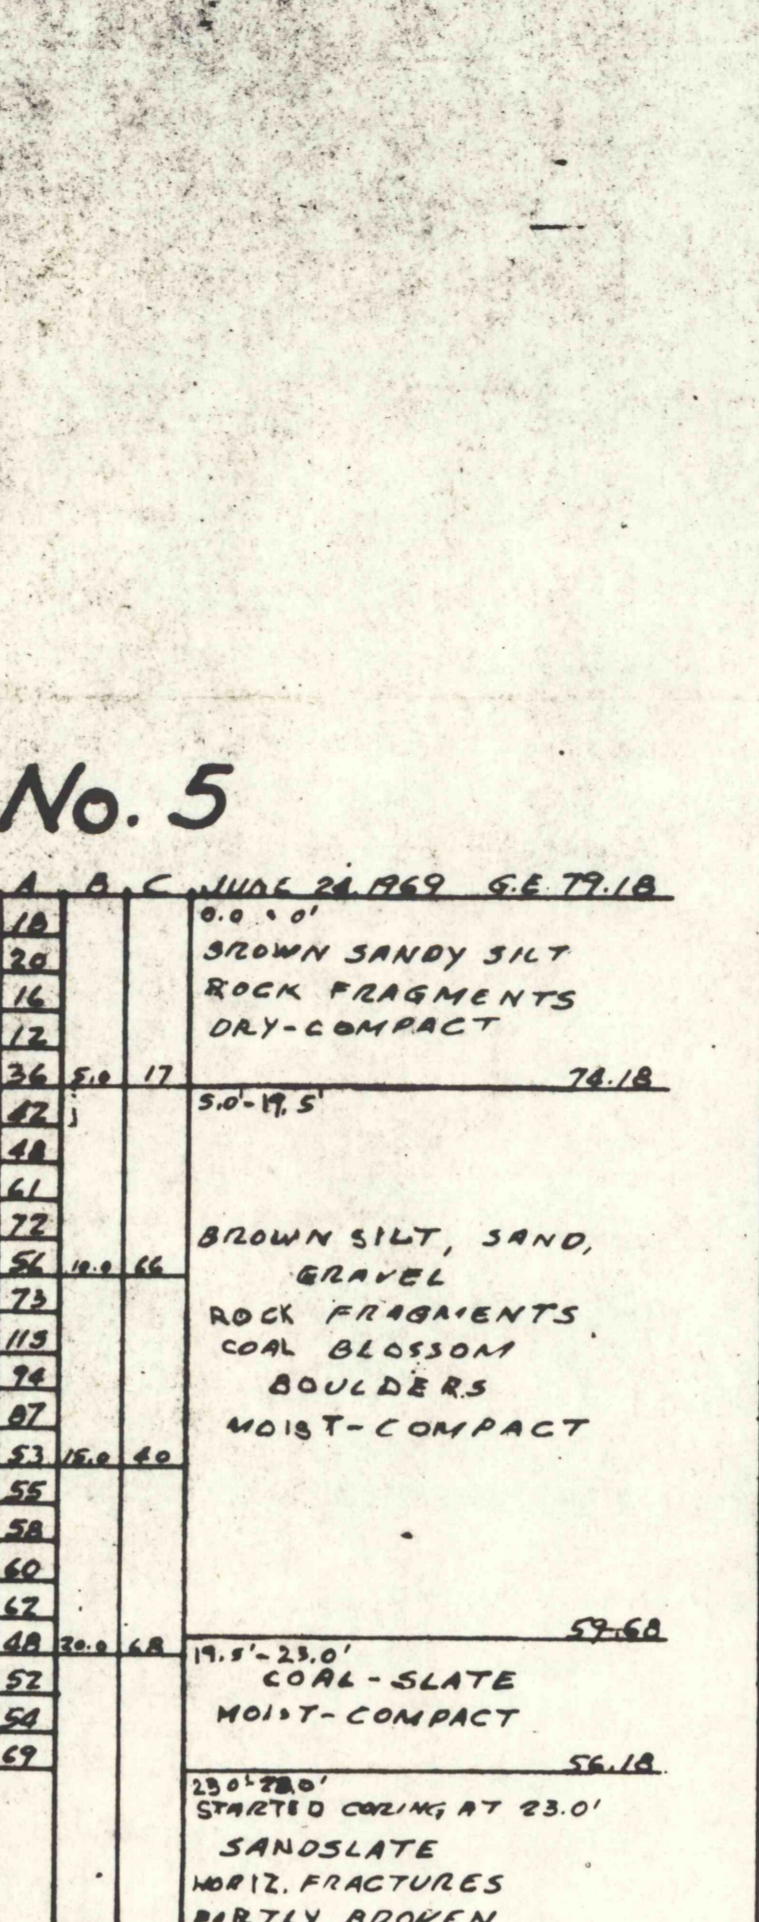 No. 5
A B C JUNE 24, 1969 G.E. 79.18
18 0.0 0'
20 BROWN SANDY SILT
16 ROCK FRAGMENTS
12 DRY-COMPACT
36 5.0 17 74.18
42 5.0'-19.5'
48
61
72 BROWN SILT, SAND,
56 10.0 66 GRAVEL
73 ROCK FRAGMENTS
113 COAL BLOSSOM
94 BOULDERS
87 MOIST-COMPACT
53 15.0 40
55
58
60
62 59.68
48 20.0 68 19.5'-23.0'
52 COAL-SLATE
54 MOIST-COMPACT
69 56.18
23.0'-28.0'
STARTED CORING AT 23.0'
SANDSLATE
HORIZ. FRACTURES
PARTLY BROKEN